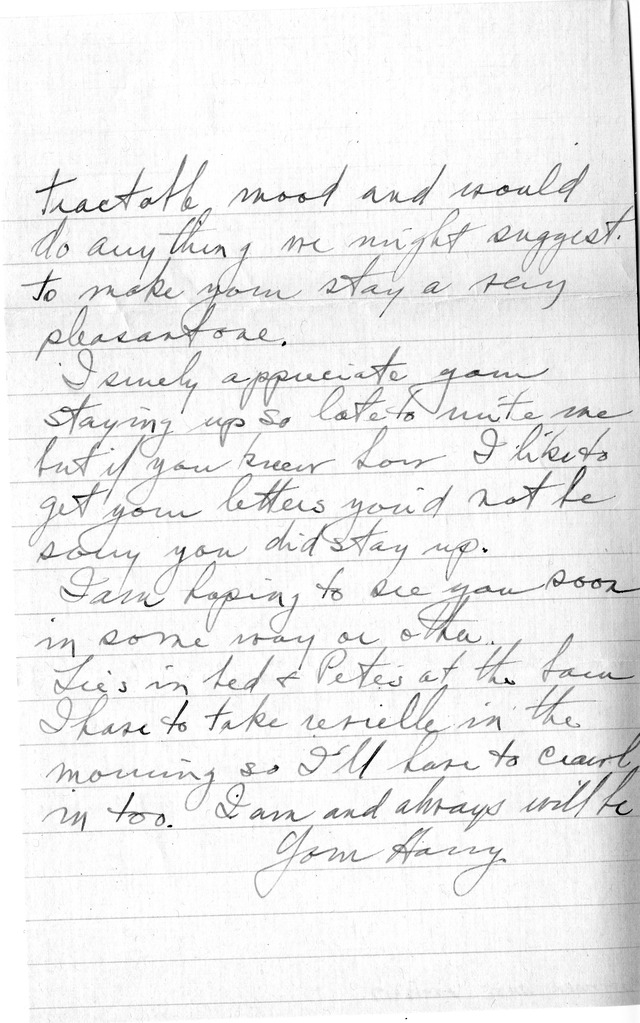 tractable mood and would
do anything we might suggest.
to make your stay a very
pleasant one.
I surely appreciate your
staying up so late to write me
but if you knew how I like to
get your letters you'd not be
sorry you did stay up.
I am hoping to see you soon
in some way or other.
in bed & Pete's at the barn
I have to take reveille in the
morning so I'll have to crawl
in too. I am and always will be
Your Harry